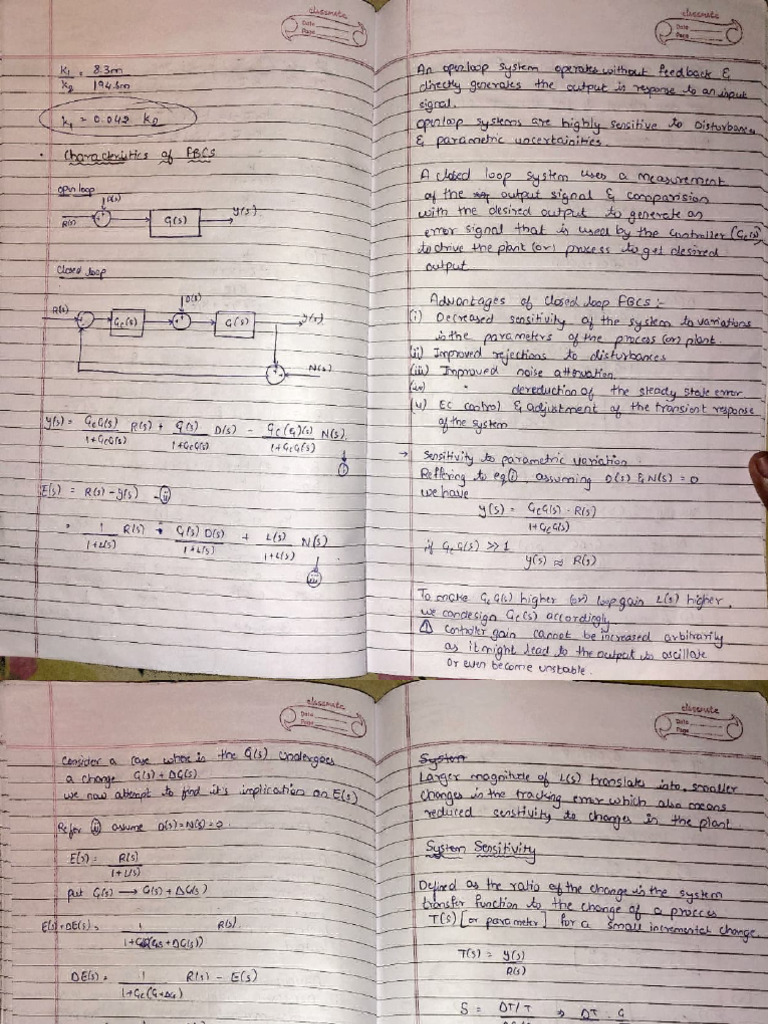 classmate
Date
Page
K1 = 8.3m
K2 194.5m
K1 = 0.042 K2
• Characteristics of FBCS
open loop
D(s)
R(s)
G(s)
Y(s)
Closed loop
D(s)
R(s)
Gc(s)
G(s)
Y(s)
N(s)
Y(s) = GcG(s) R(s) + G(s) D(s) - Gc(s) N(s)
1+GcG(s) 1+GcG(s) 1+GcG(s)
E(s) = R(s) - Y(s) - (ii)
1 R(s) G(s) D(s) + L(s) N(s)
1+L(s) 1+L(s) 1+L(s)
classmate
Date
Page
An openloop system operates without feedback &
directly generates the output is response to an input
signal.
openloop systems are highly sensitive to Disturbances
& parametric uncertainities.
A closed loop system uses a measurement
of the output signal & comparision
with the desired output to generate an
error signal that is used by the controller (Gc(s))
to drive the plant (or) process to get desired
output
Advantages of closed loop FBCS :-
(i) Decreased sensitivity of the system to variations
is the parameters of the process (or) plant.
(ii) Improved rejections to disturbances
(iii) Improved noise attenuation.
(iv) " dereduction of the steady state error.
(v) EC control & adjustment of the transient response
of the system
→ Sensitivity to parametric variation.
Reffering to eq (i), assuming D(s) & N(s) = 0
we have
Y(s) = GcG(s) . R(s)
1+GcG(s)
if GcG(s) >> 1
Y(s) ≈ R(s)
To make GcG(s) higher (or) loop gain L(s) higher,
we can design Gc(s) accordingly
⚠ Controller gain cannot be increased arbitrarily
as it might lead to the output to oscillate
or even become unstable.
classmate
Date
Page
Consider a case where is the G(s) undergoes
a change G(s) + DG(s)
we now attempt to find it's implication on E(s)
Refer (ii) assume D(s) = N(s) = 0.
E(s) = R(s)
1+L(s)
Put G(s) → G(s) + DG(s)
E(s) + DE(s) = 1 R(s)
1+Gc(G(s) + DG(s))
DE(s) = 1 R(s) - E(s)
1+Gc(G+DG)
classmate
Date
Page
System
Larger magnitude of L(s) translates into smaller
changes in the tracking error which also means
reduced senstivity to changes in the plant.
System Sensitivity
Defined as the ratio of the change in the system
transfer function to the change of a process
T(s) [or parameter] for a small incremental change.
T(s) = Y(s)
R(s)
S = DT/T → DT . G